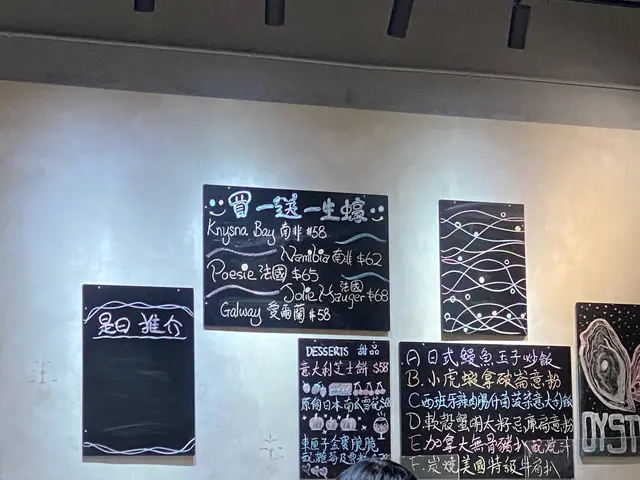 買一送一生蠔
Knysna Bay 南非 $58
Namibia 南非 $62
Poesie 法國 $65
Jolie 法國 $68
Galway 愛爾蘭 $58
是日推介
DESSERTS 甜品
意大利芝士餅 $58
日本南瓜雪葩 $68
A 日式鰻魚玉子炒飯
B. 小虎蝦拿破崙意粉
C 西班牙辣肉腸意大利飯
D. 軟殼蟹明太籽忌廉意粉
E. 加拿大無骨豬扒
F. 炭燒美國特級牛扒
OYST